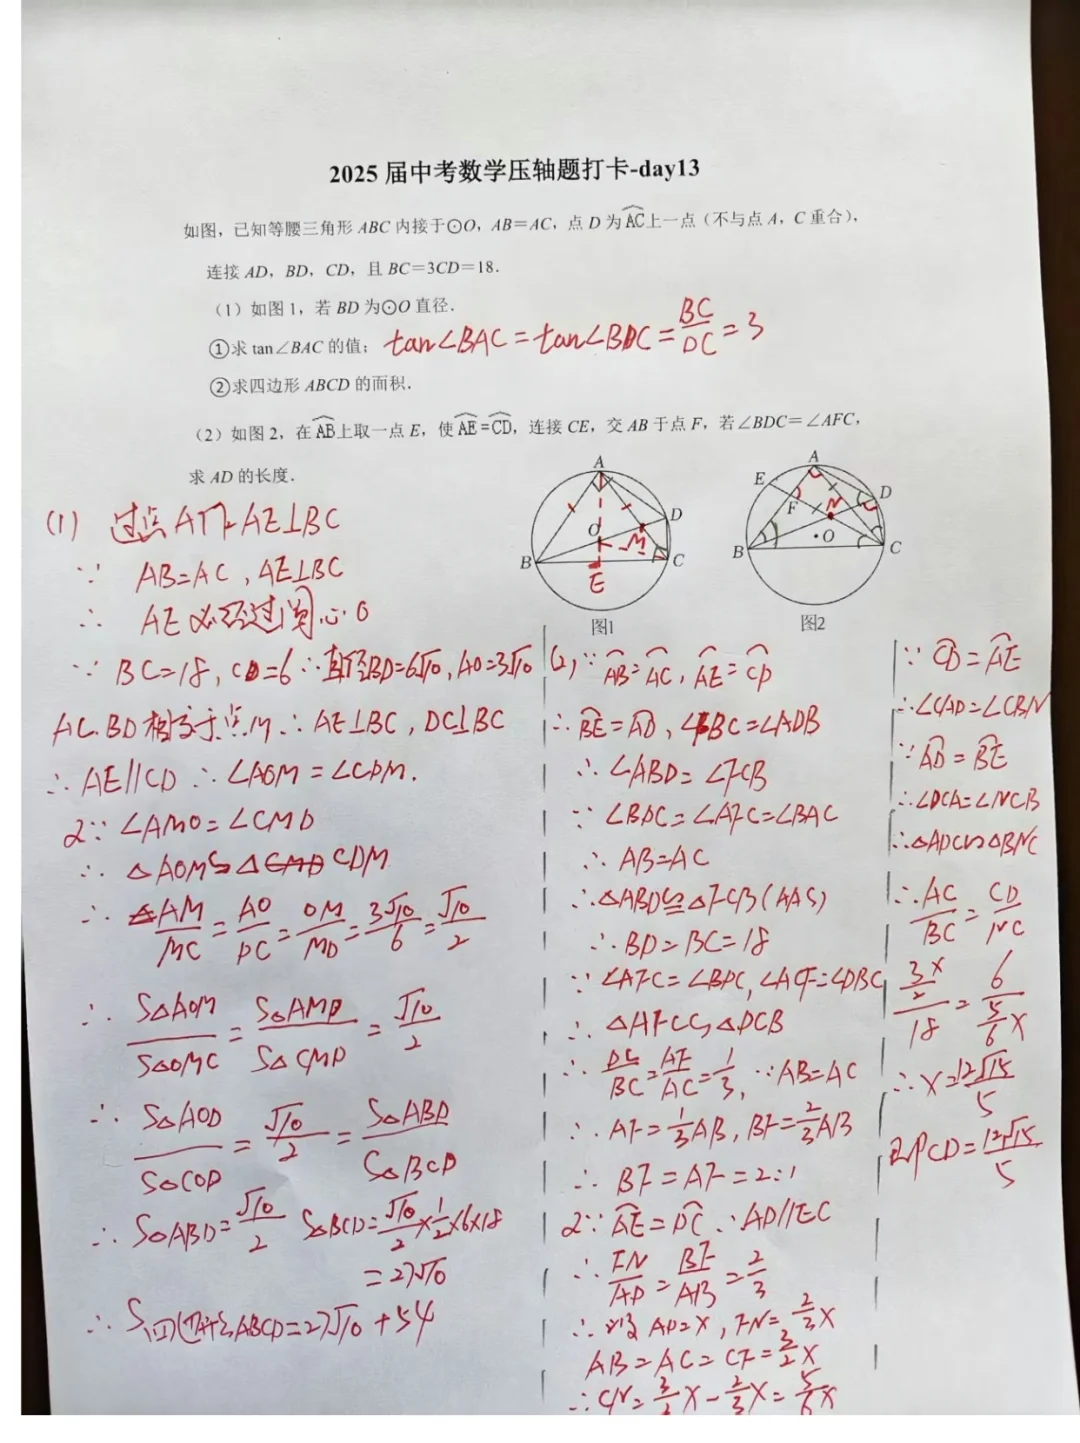 2025 届中考数学压轴题打卡-day13
如图，已知等腰三角形 ABC 内接于⊙O，AB=AC，点 D 为AC上一点（不与点 A，C 重合），
连接 AD，BD，CD，且 BC=3CD=18．
（1）如图 1，若 BD 为⊙O 直径．
①求 tan∠BAC 的值； tan∠BAC=tan∠BDC=BC/DC=3
②求四边形 ABCD 的面积．
（2）如图 2，在AB上取一点 E，使AE=CD，连接 CE，交 AB 于点 F，若∠BDC=∠AFC，
求 AD 的长度．
A
D
O
M
B
C
E
图1
A
E
D
F
N
O
B
C
图2
(1) 过点A作AE⊥BC
∵ AB=AC，AE⊥BC
∴ AE必经过圆心O
∵ BC=18，CD=6 ∴直径BD=6√10，AO=3√10
AC、BD相交于点M ∴AE⊥BC，DC⊥BC
∴AE//CD ∴∠AOM=∠CDM．
又∵∠AMO=∠CMD
∴ △AOM∽△CDM
∴ AM/MC=AO/DC=OM/MD=3√10/6=√10/2
∴ S△AOM/S△OMC=S△AMD/S△CMD=√10/2
∴ S△AOD/S△COD=√10/2=S△ABD/S△BCD
∴ S△ABD=√10/2 S△BCD=√10/2×1/2×6×18
=27√10
∴ S四边形ABCD=27√10+54
(2)∵AB=AC，AE=CD
∴BE=AD，∠FBC=∠ADB
∴∠ABD=∠FCB
∵∠BDC=∠AFC=∠BAC
∴ AB=AC
∴△ABD≌△FCB(AAS)
∴BD=BC=18
∵∠AFC=∠BDC，∠ACF=∠DBC
∴ △AFC∽△DCB
∴ DC/BC=AF/AC=1/3，∵AB=AC
∴ AF=1/3AB，BF=2/3AB
∴ BF=AF=2:1
又∵AE=DC ∴AD//EC
∴ FN/AD=BF/AB=2/3
∴ 设AD=x，FN=2/3x
AB=AC=CF=3/2x
∴CN=3/2x-2/3x=5/6x
∵ CD=AE
∴∠CAD=∠CBN
∵AD=BE
∴∠DCA=∠NCB
∴△ADC∽△BNC
∴AC/BC=CD/NC
3/2x/18=6/5/6x
∴x=12√15/5
即CD=12√15/5